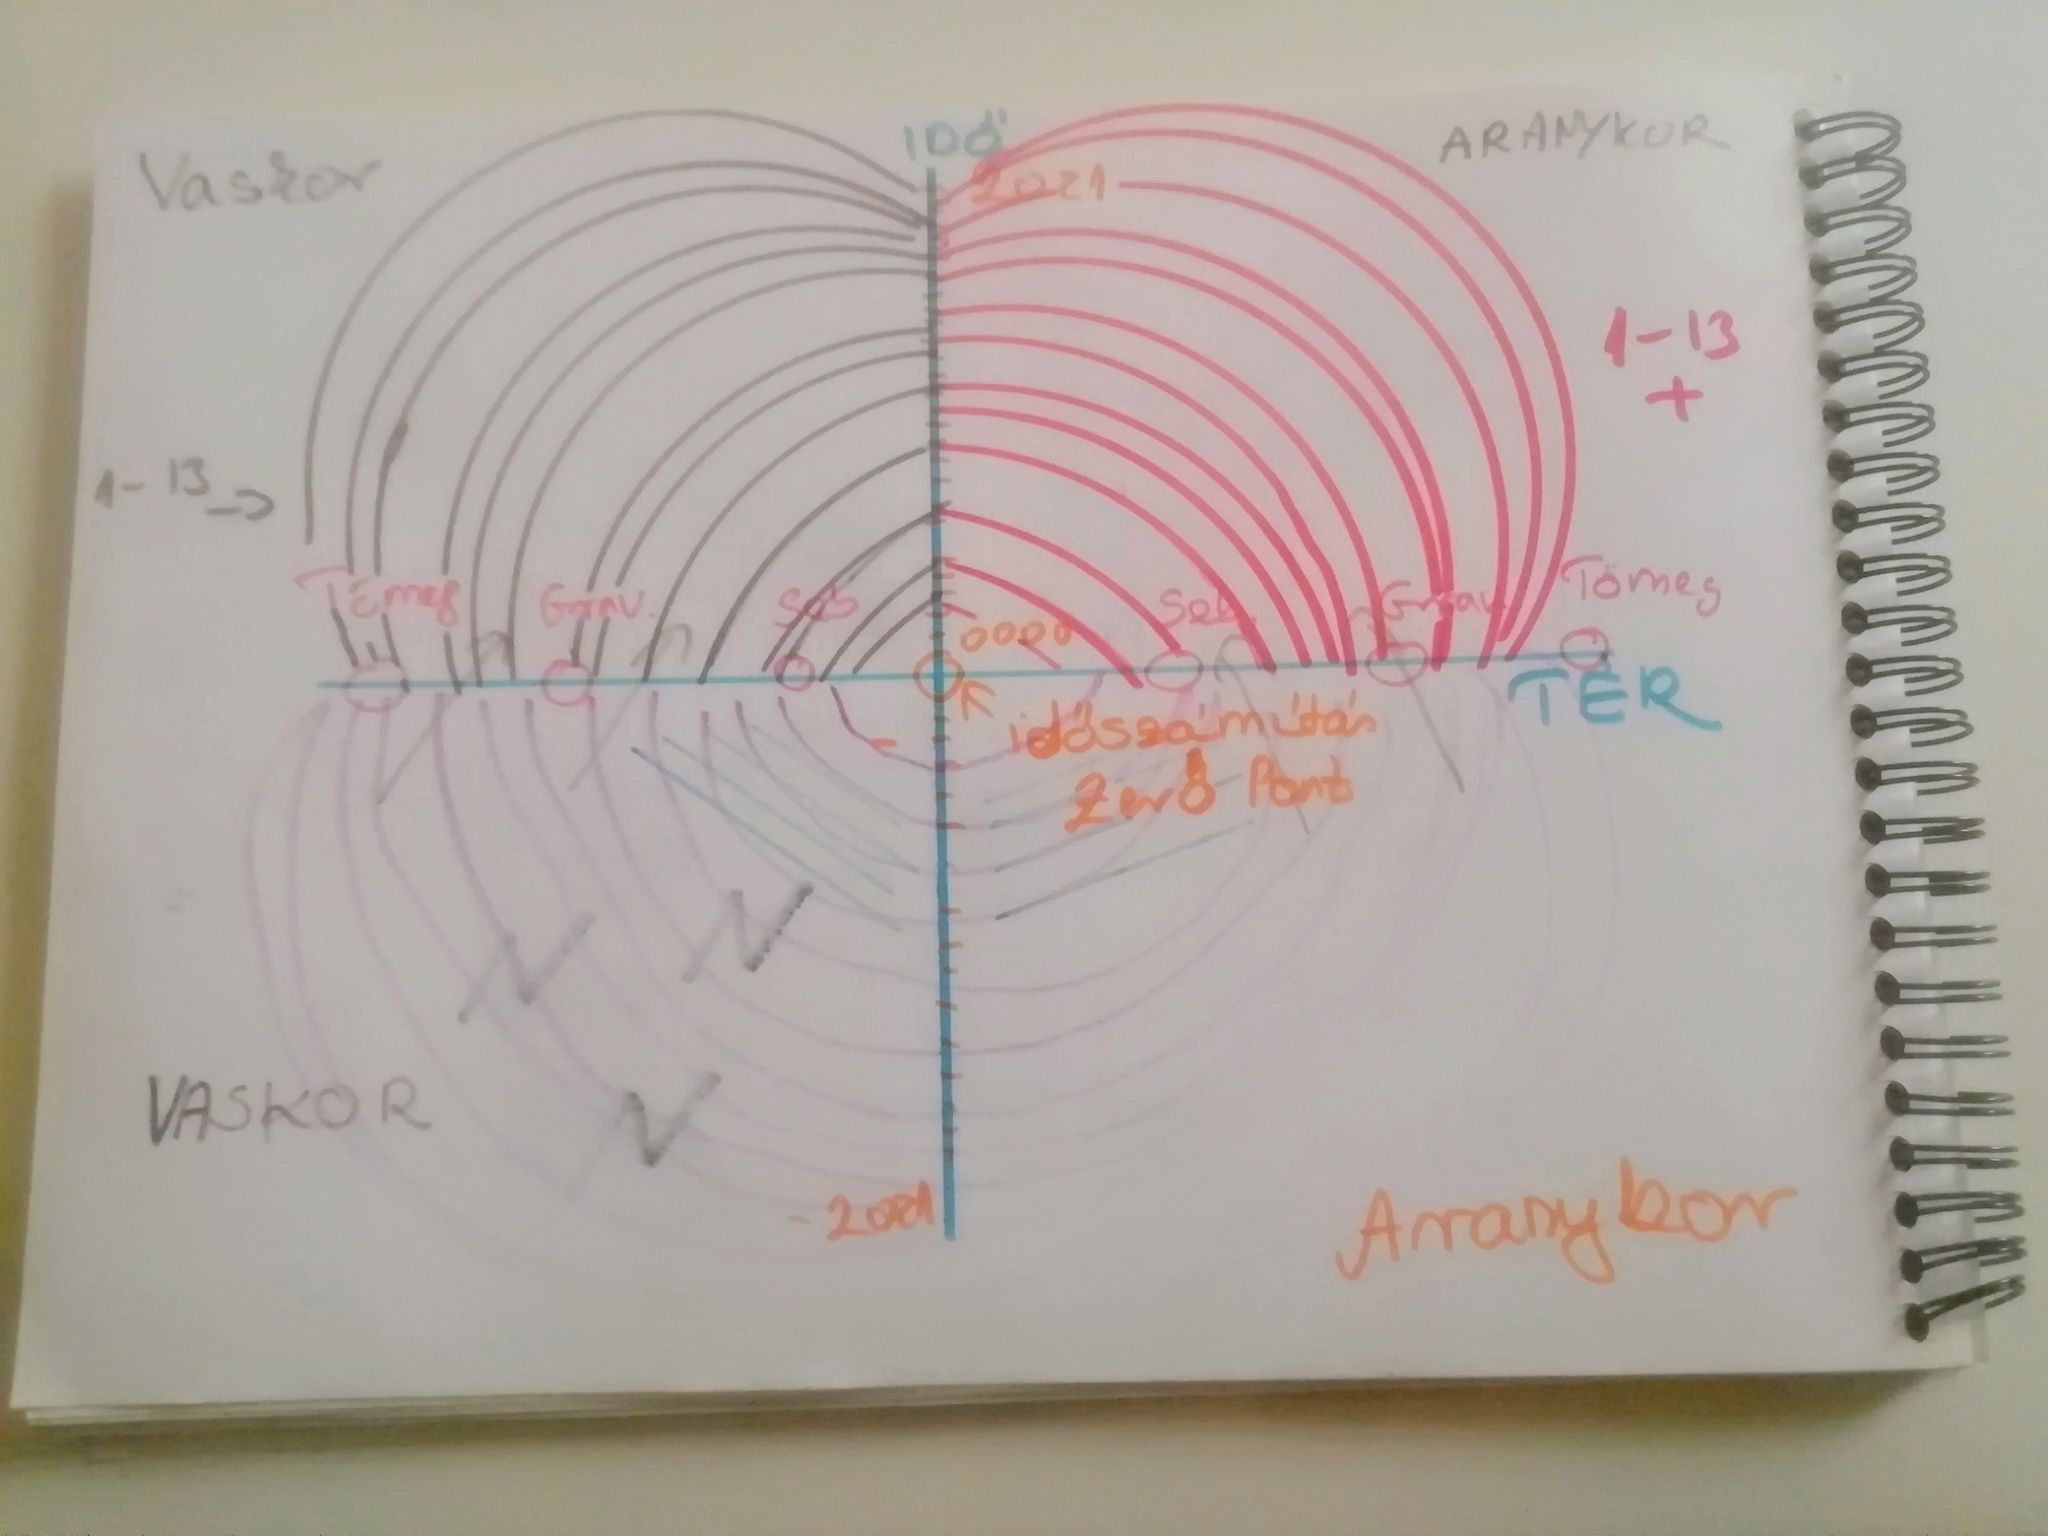 IDŐ
Vaskor
ARANYKOR
2021
1-13
+
1-13
Tömeg
Grav.
Seb
Seb.
Grav.
Tömeg
0000
TÉR
időszámítás
Zeró Pont
VASKOR
-2021
Aranykor